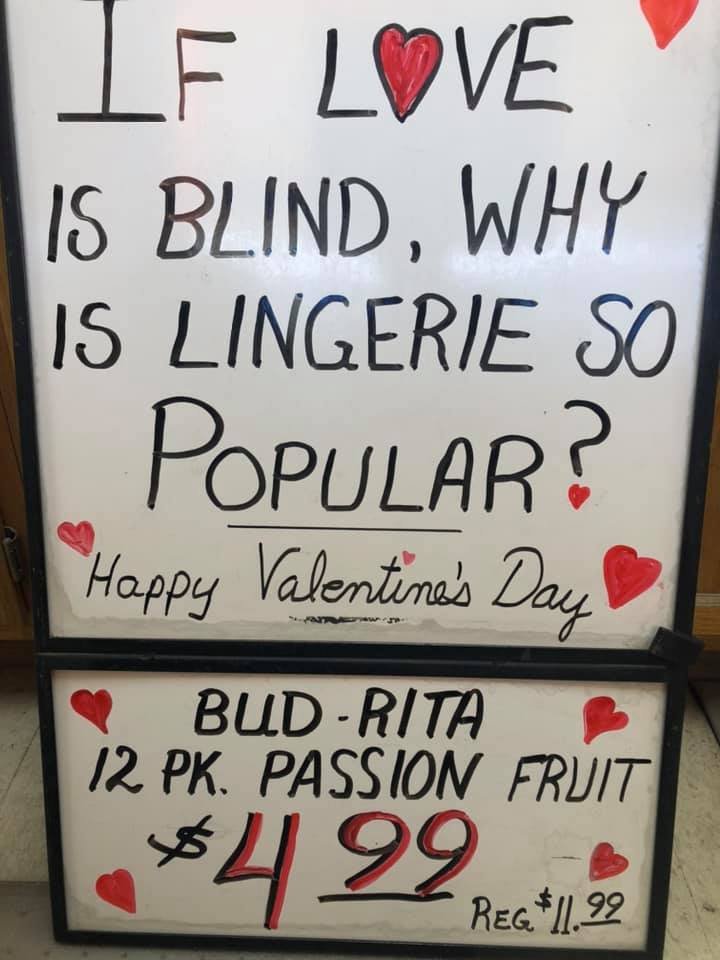 IF LOVE
IS BLIND, WHY
IS LINGERIE SO
POPULAR?
Happy Valentine's Day
BUD-RITA
12 PK. PASSION FRUIT
$4.99
REG $11.99